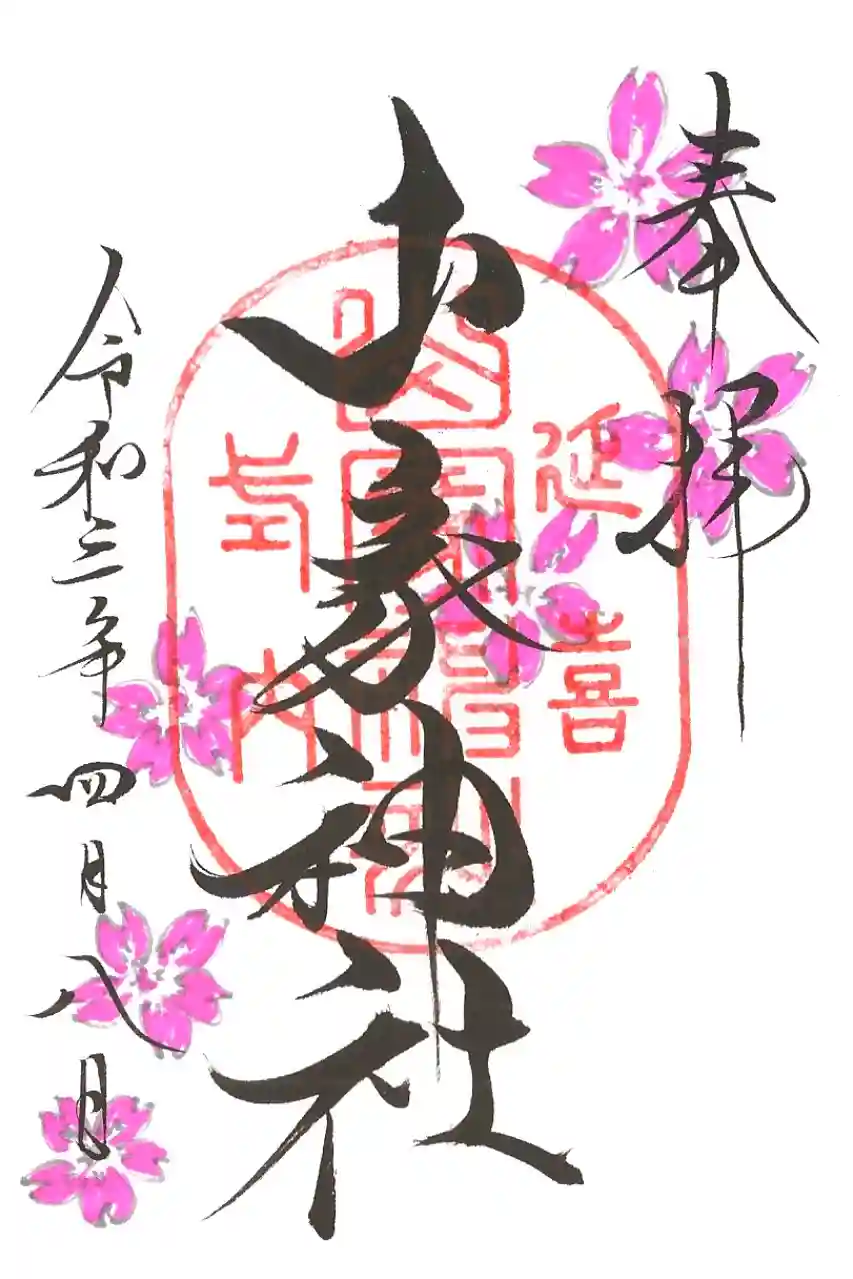 奉拝
山家神社
令和三年四月八日
延喜
式内